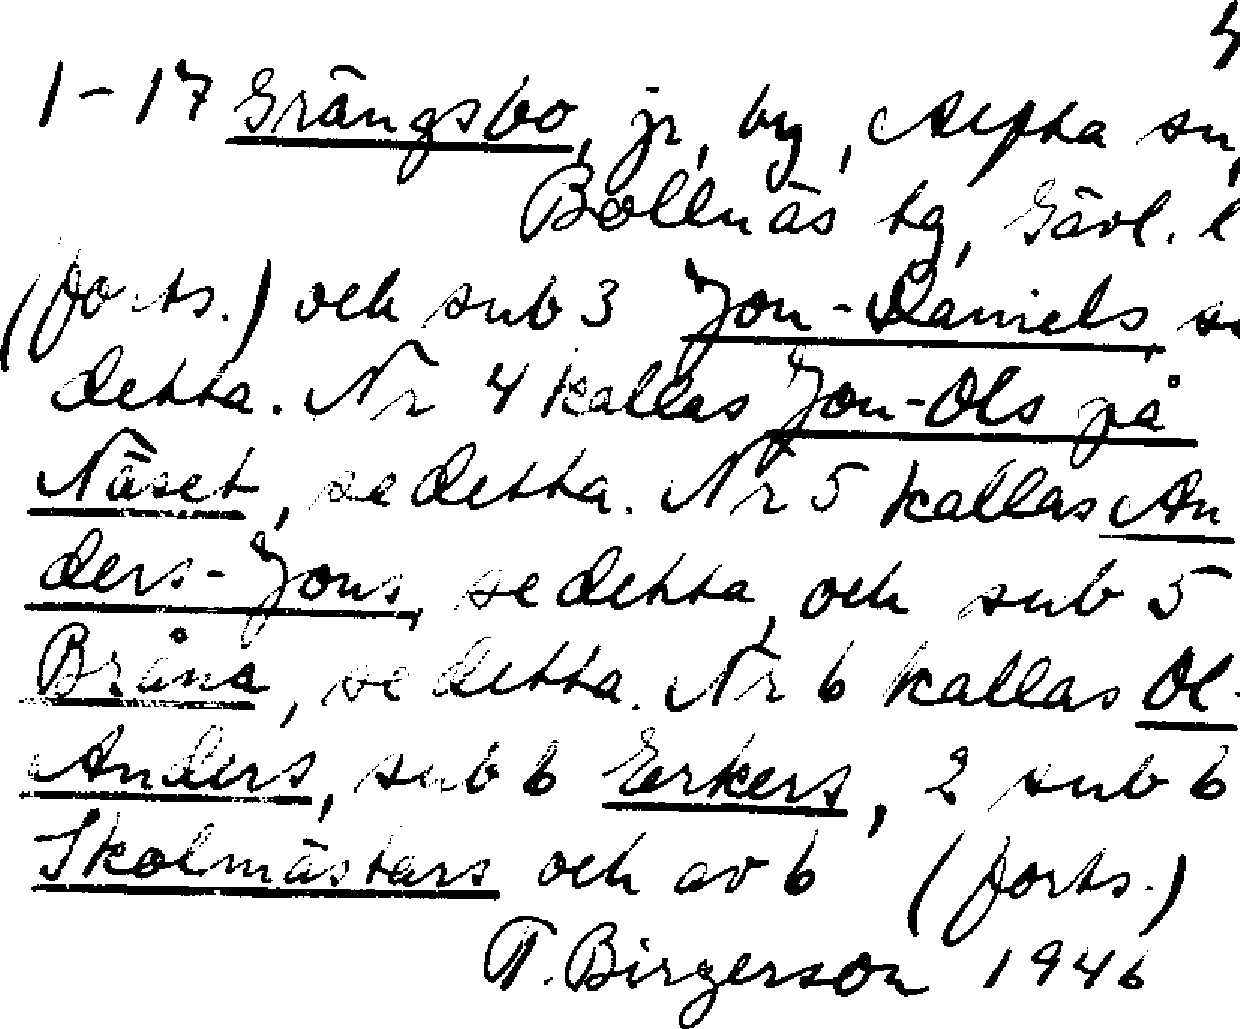 1-17 Grängsbo, jr, by, Alfta sn,
Bollnäs tg, Gävl. l
(forts.) och sub 3 Jon-Daniels, se
detta. Nr 4 kallas Jon-Ols på
Näset, se detta. Nr 5 kallas An
ders-Jons, se detta, och sub 5
Bråna, se detta. Nr 6 kallas Ol-
Anders, sub 6 Erkers, 2 sub 6
Skolmästars och av 6 (forts.)
T. Birgerson 1946